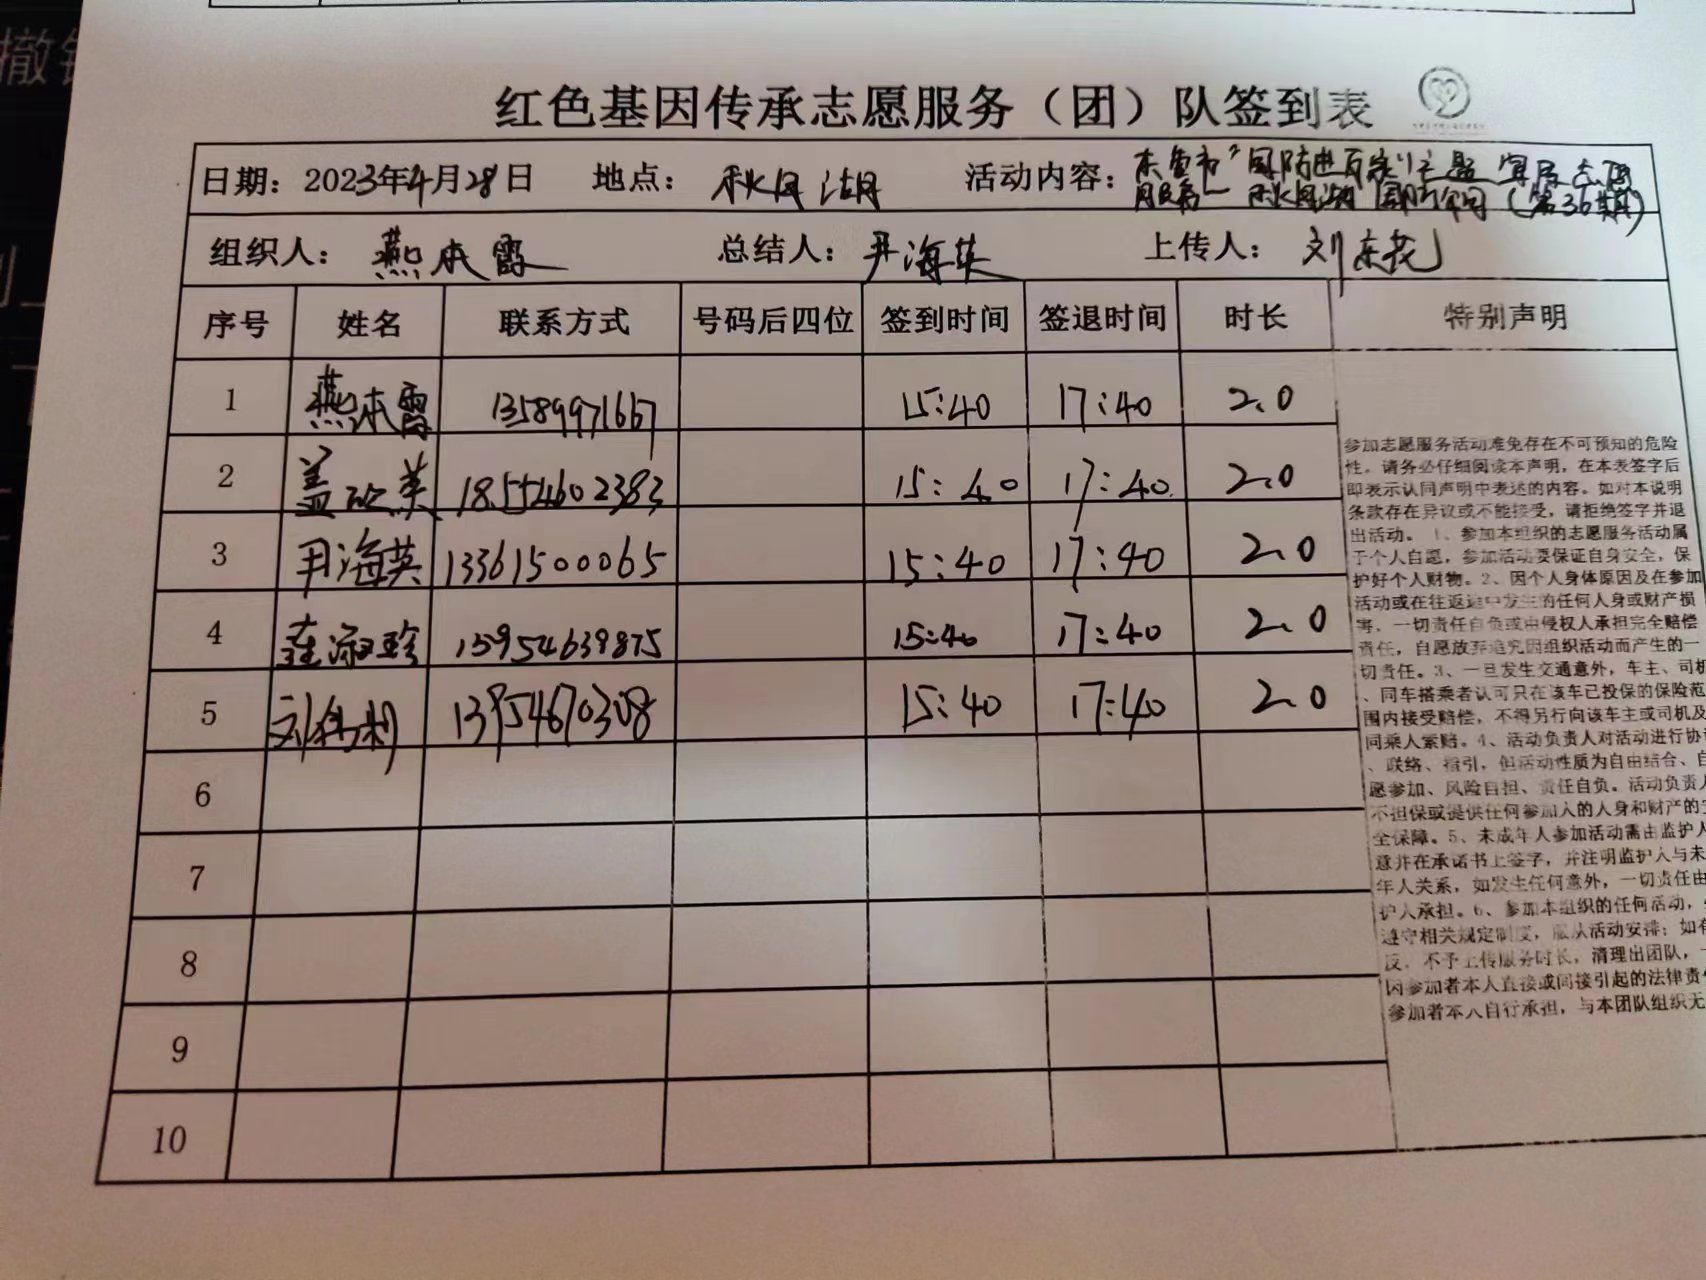 撤销
红色基因传承志愿服务（团）队签到表
日期：2023年4月28日 地点：秋月湖 活动内容：东营市"国防进万家"主题宣展志愿
服务—秋月湖 （第36期）
组织人：燕本霞 总结人：尹海英 上传人：刘东花
序号 姓名 联系方式 号码后四位 签到时间 签退时间 时长 特别声明
1 燕本霞 13589971667 15:40 17:40 2.0
2 盖英 18554602383 15:40 17:40 2.0
3 尹海英 13361500065 15:40 17:40 2.0
4 淑珍 13954639875 15:40 17:40 2.0
5 刘利 13954670308 15:40 17:40 2.0
6
7
8
9
10
参加志愿服务活动难免存在不可预知的危险
性。请务必仔细阅读本声明，在本表签字后
即表示认同声明中表述的内容。如对本说明
条款存在异议或不能接受，请拒绝签字并退
出活动。1、参加本组织的志愿服务活动属
于个人自愿，参加活动要保证自身安全，保
护好个人财物。2、因个人身体原因及在参加
活动或在往返途中发生的任何人身或财产损
害，一切责任自负或由侵权人承担完全赔偿
责任，自愿放弃追究因组织活动而产生的一
切责任。3、一旦发生交通意外，车主、司机
、同车搭乘者认可只在该车已投保的保险范
围内接受赔偿，不得另行向该车主或司机及
同乘人索赔。4、活动负责人对活动进行协
、联络、指引，但活动性质为自由结合、自
愿参加、风险自担、责任自负。活动负责人
不担保或提供任何参加人的人身和财产的安
全保障。5、未成年人参加活动需由监护人
意并在承诺书上签字，并注明监护人与未
年人关系，如发生任何意外，一切责任由
护人承担。6、参加本组织的任何活动，
遵守相关规定制度，服从活动安排；如有
反，不予上传服务时长，清理出团队，
因参加者本人直接或间接引起的法律责
参加者本人自行承担，与本团队组织无